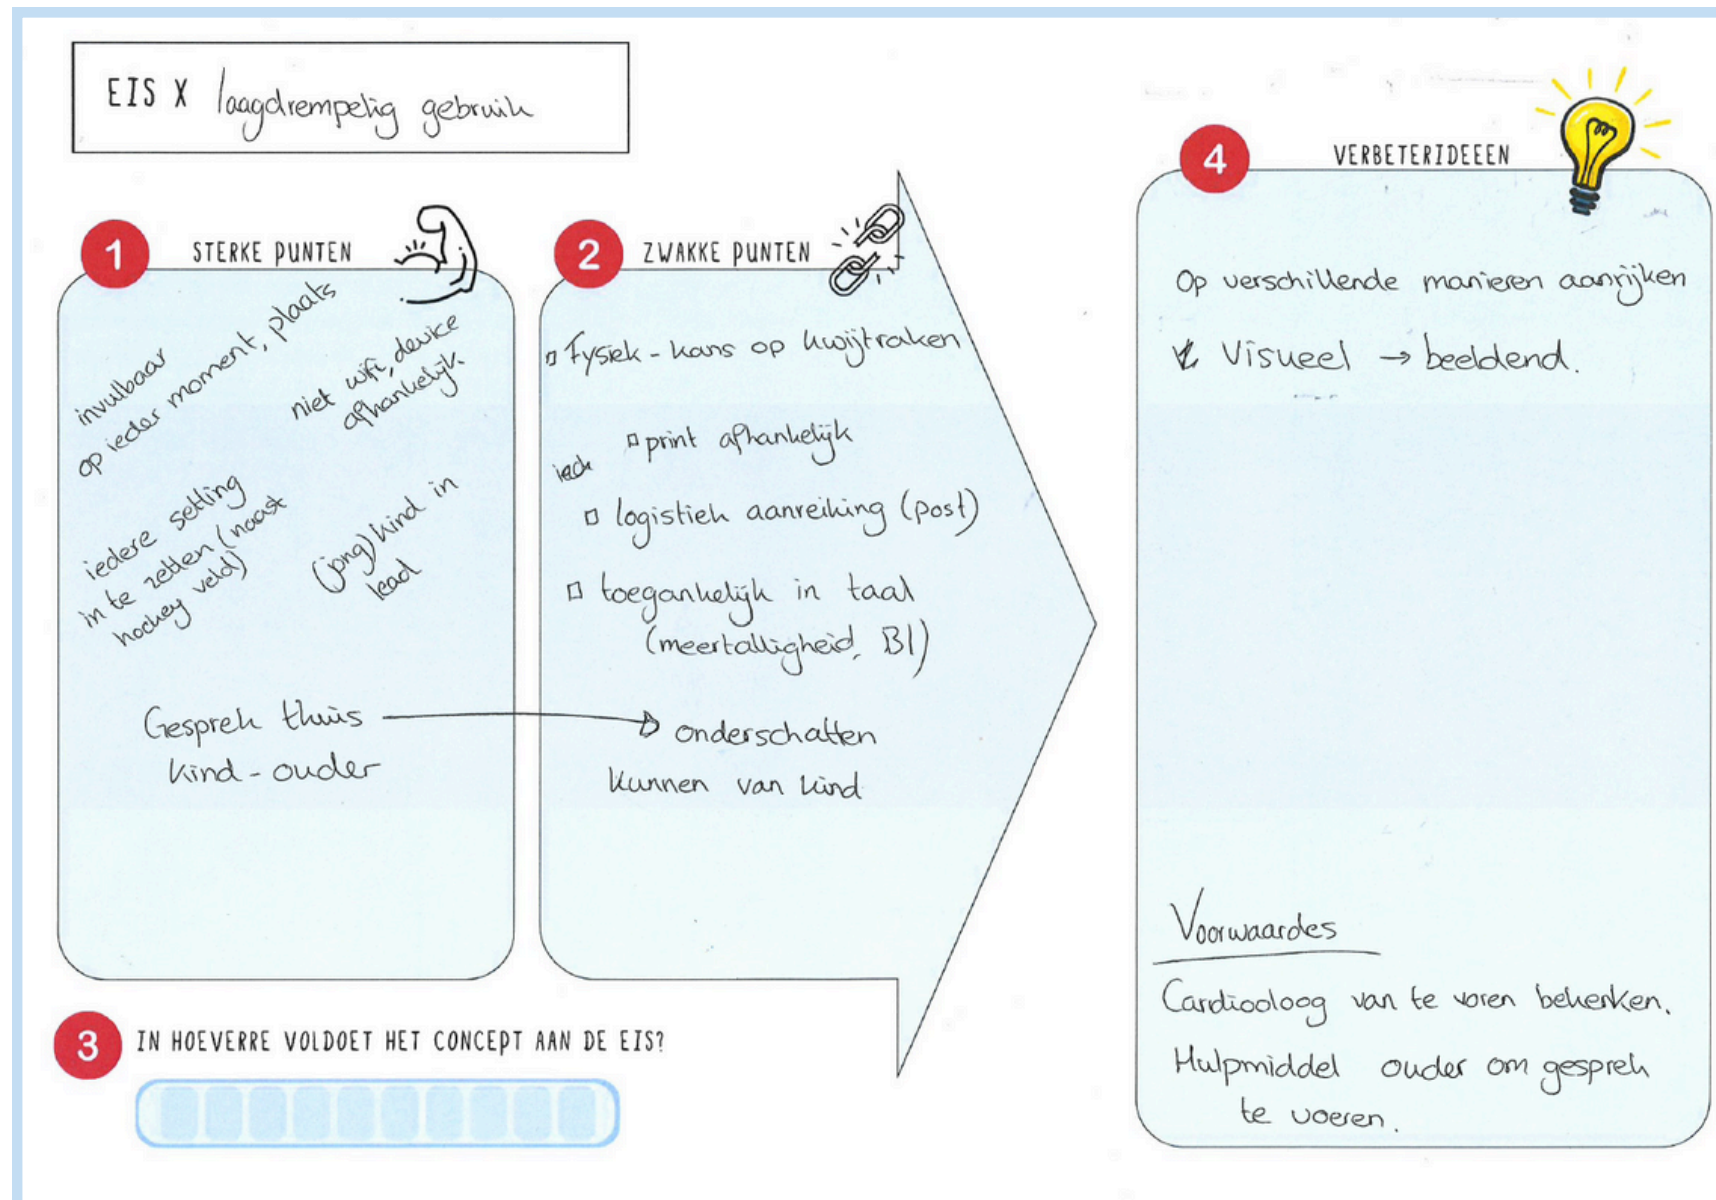 EIS X laagdrempelig gebruik
1
STERKE PUNTEN
invulbaar
op ieder moment, plaats
niet wifi, device
afhankelijk
iedere setting
in te zetten (naast
hockey veld)
(jong) kind in
lead
Gesprek thuis
kind - ouder
2
ZWAKKE PUNTEN
Fysiek - kans op kwijtraken
print afhankelijk
logistiek aanreiking (post)
toegankelijk in taal
(meertalligheid, B1)
onderschatten
kunnen van kind
3
IN HOEVERRE VOLDOET HET CONCEPT AAN DE EIS?
4
VERBETERIDEEEN
Op verschillende manieren aanrijken
Visueel → beeldend.
Voorwaardes
Cardiooloog van te voren bekerken.
Hulpmiddel ouder om gesprek
te voeren.